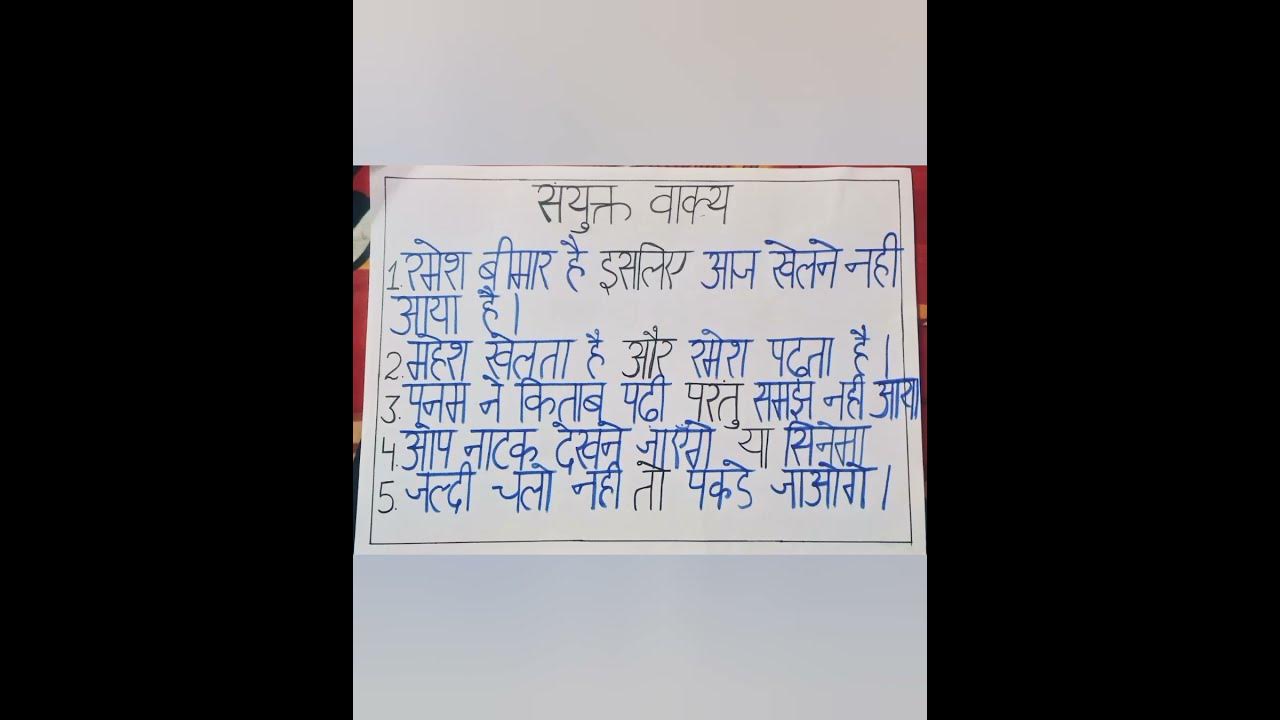 संयुक्त वाक्य
1. रमेश बीमार है इसलिए आज खेलने नही
आया है।
2. महेश खेलता है और रमेश पढता है।
3. पुनम ने किताब पढी परंतु समझ नही आया
4. आप नाटक देखने जाएँगे या सिनेमा
5. जल्दी चलो नही तो पकडे जाओगे।